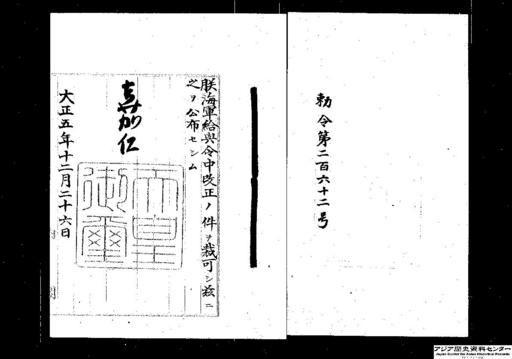 勅令第二百六十二号
朕海軍給與令中改正ノ件ヲ裁可シ茲ニ
之ヲ公布セシム
嘉仁
天皇御璽
大正五年十二月二十六日
アジア歴史資料センター
Japan Center for Asian Historical Records